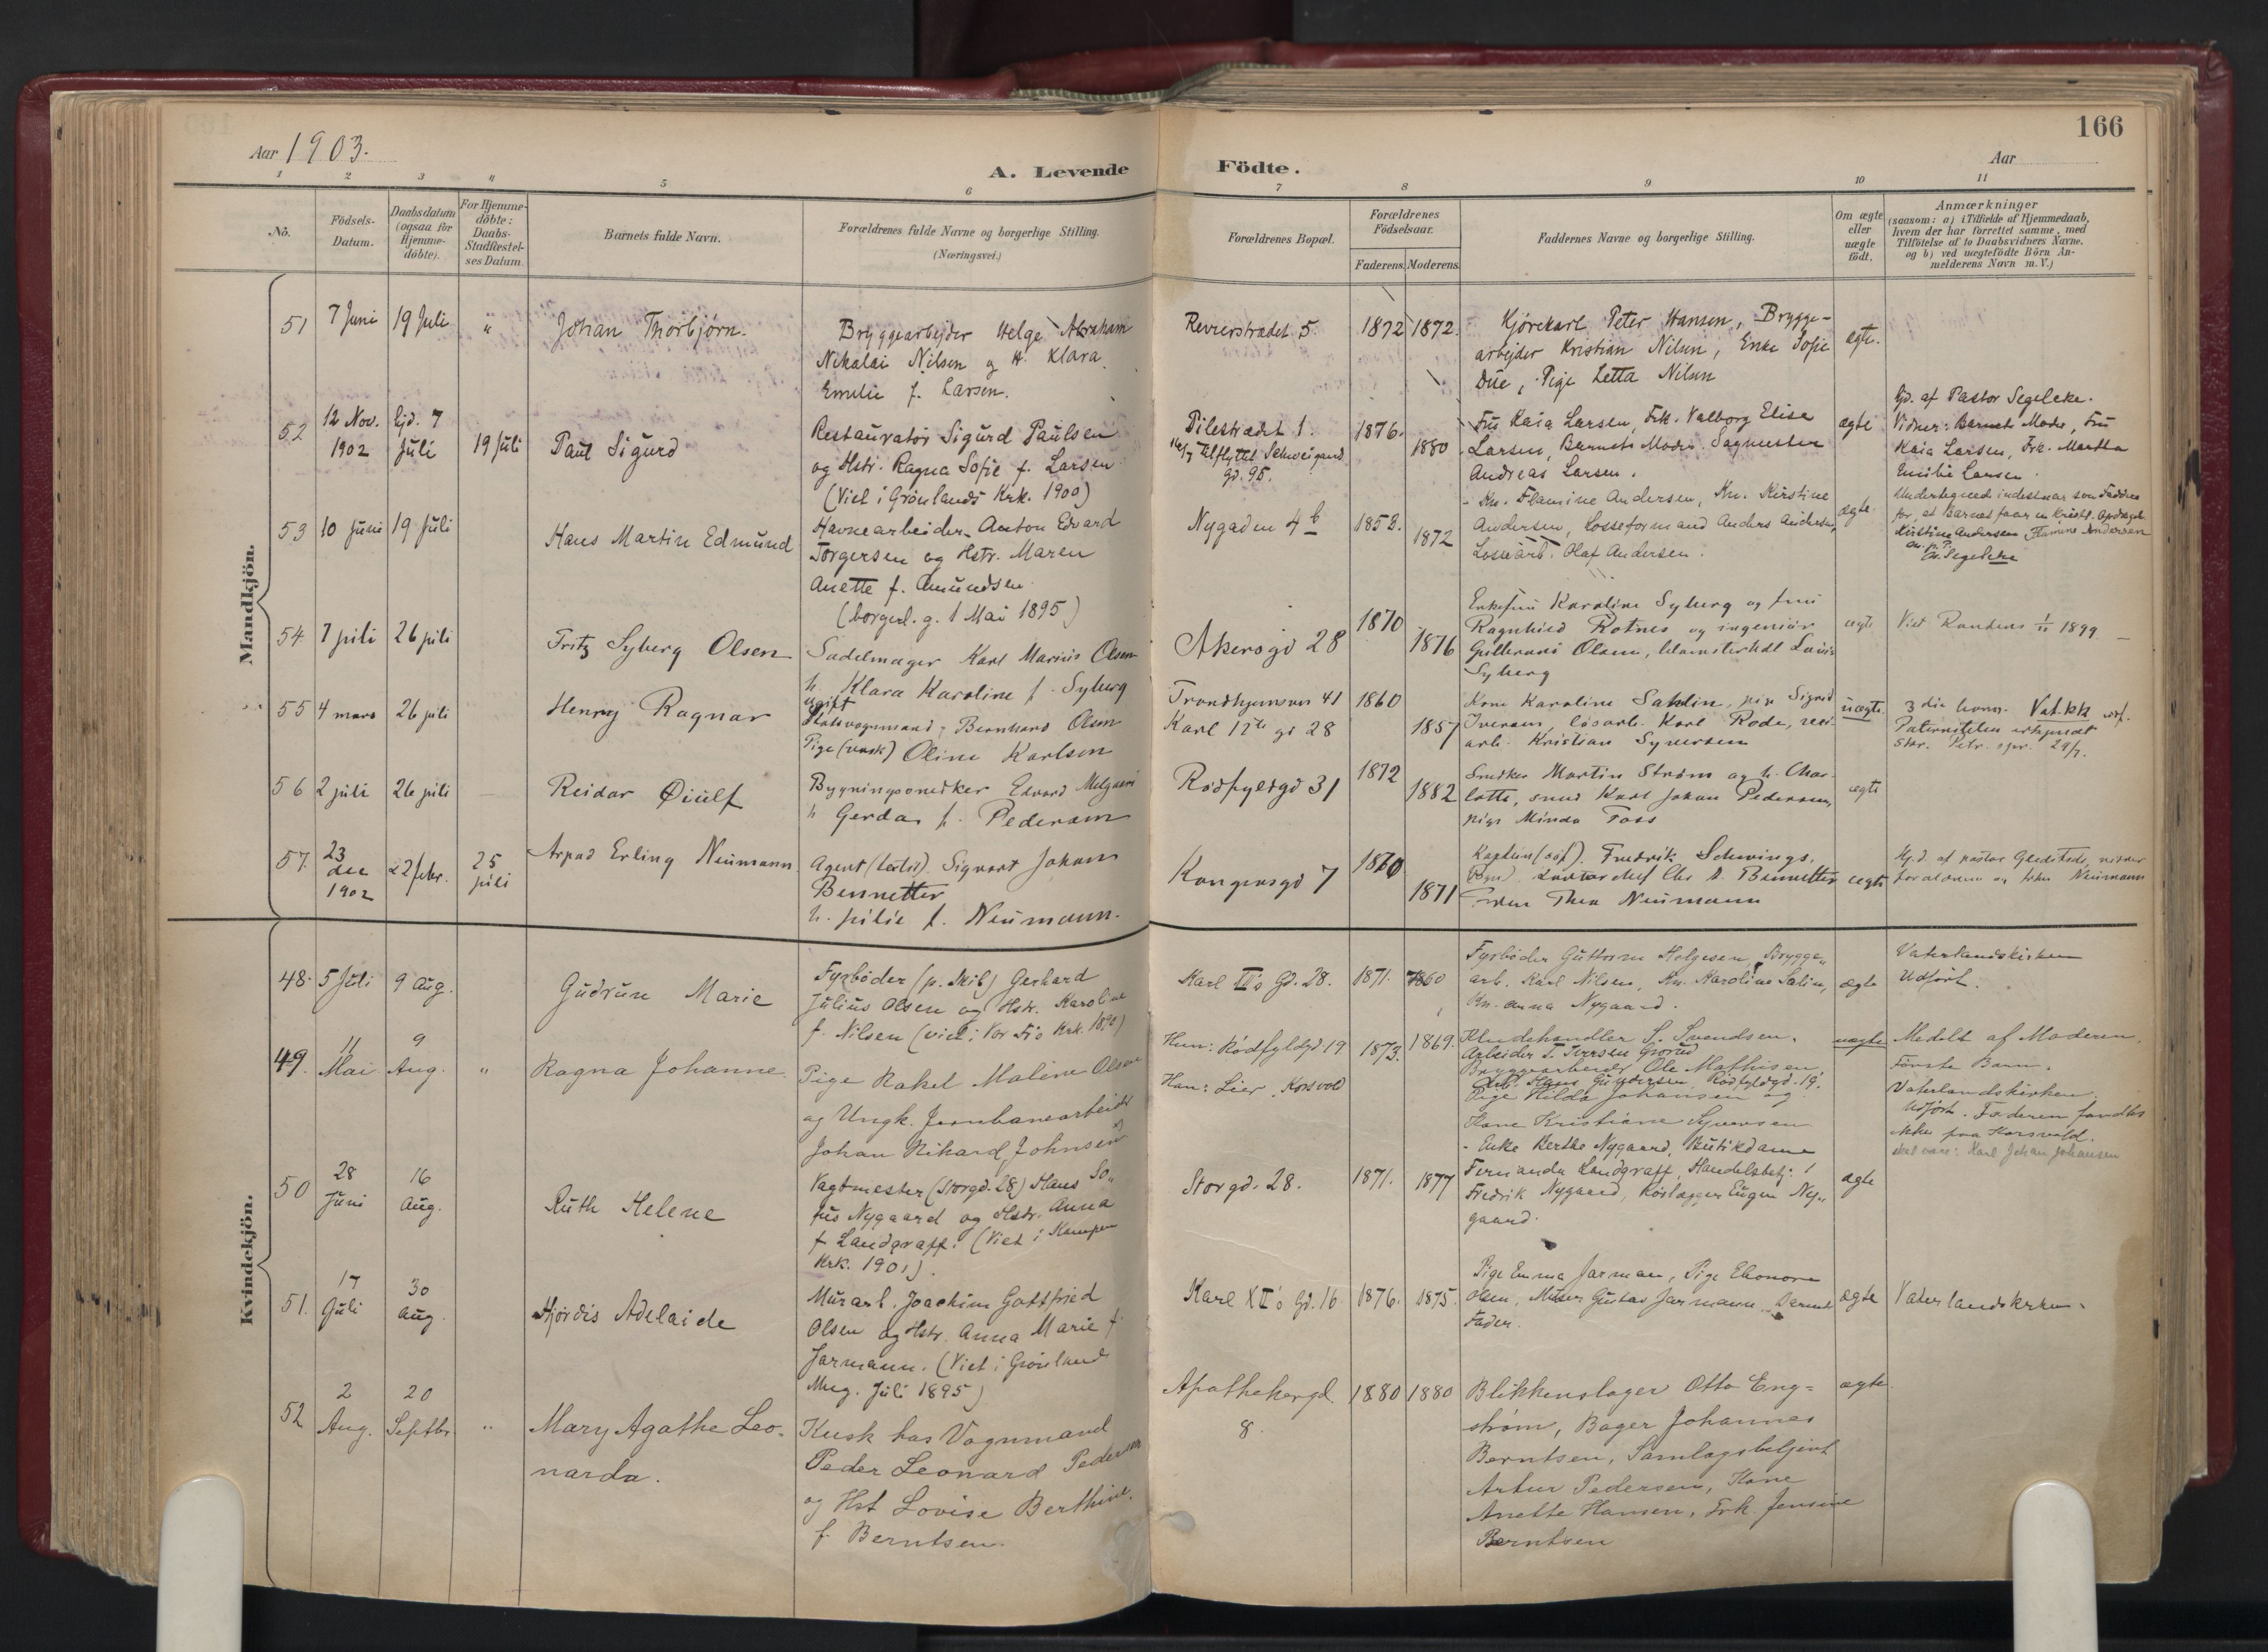 166
Aar 1903.
A. Levende Födte.
Aar
1 2 3 4 5 6 7 8 9 10 11
No.
Födsels-
Datum.
Daabsdatum
(ogsaa for
Hjemme-
döbte).
For Hjemme-
döbte:
Daabs-
Stadfæstel-
ses Datum.
Barnets fulde Navn.
Forældrenes fulde Navne og borgerlige Stilling.
(Næringsvei.)
Forældrenes Bopæl.
Forældrenes
Födselsaar.
Faderens. Moderens.
Faddernes Navne og borgerlige Stilling.
Om ægte
eller
uægte
födt.
Anmærkninger
(saasom: a) i Tilfælde af Hjemmedaab,
hvem der har forrettet samme, med
Tilföielse af to Daabsvidners Navne.
og b) ved uægtefödte Börn An-
melderens Navn m. V.)
Mandkjön.
51 7 Juni 19 Juli " Johan Thorbjørn.
Bryggearbejder Helge Abraham
Nikolai Nilsen og H. Klara
Emelie f. Larsen.
Revierstrædet 5. 1872 1872.
Kjørekarl Peter Hansen, Brygge-
arbejder Kristian Nilsen, Enke Sofie
Due, Pige Letta Nilsen
ægte.
52 12 Nov. 1902 Hjd. 7 Juli 19 Juli Paul Sigurd
Restauratør Sigurd Paulsen
og Hstr. Ragna Sofie f. Larsen
(Viet i Grønlands Krk. 1900)
Pilestrædet 1.
16/7 tilflyttet Schweigaard
gd. 95.
1876. 1880
Fru Kaia Larsen, Frk. Valborg Elise
Larsen, Barnets Moder. Sagmester
Andreas Larsen.
ægte
Hjd. af Pastor Segelcke.
Vidner: Barnets Moder, Fru
Kaia Larsen, Frk. Martha
Emilie Larsen
53 10 Juni 19 Juli Hans Martin Edmund
Havnearbeider Anton Edvard
Torgersen og Hstr. Maren
Anette f. Amundsen
(borgerl. g. 1 Mai 1895)
Nygaden 4 b 1853. 1872
Kn. Flamine Andersen, Kn. Kirstine
Andersen, Losseformand Anders Andersen,
Lossearb. Olaf Andersen.
ægte.
Undertegnede indestaar som Faddere
for, at Barnet faar en Kristl. Opdragelse
Kirstine Andersen Flamine Andersen
Segelcke
54 7 juli 26 juli Fritz Syberg Olsen
Sadelmager Karl Marius Olsen
h. Klara Karoline f. Syberg
Akersgd 28 1870 1876
Enkefru Karoline Syberg og fru
Ragnhild Rotnes og ingeniør
Olsen, Louis
Syberg
ægte
Viet Randers 1899
55 4 mars 26 juli Henry Ragnar
ugift
Bernhard Olsen
Pige (vask) Oline Karlsen
Trondhjemsvn 41
Karl 12te gd 28
1860 1857
Kone Karoline Sahlin, pige Sigrid
Iversen, løsarb. Karl Rode,
arb. Kristian Syversen
uægte.
3die barn. Vat.kk udf.
Paterniteten erkjendt
56 2 juli 26 juli Reidar Øiulf
Bygningssnedker Edvard
h Gerda f. Pedersen
Rødfyldgd 31 1872 1882
Snedker Martin Strøm og h. Char-
lotte, sned Karl Johan Pedersen,
pige Minda Foss
ægte
57. 23 dec 1902 22 febr. 25 juli Arpad Erling Neumann
Agent Sigvart Johan
Bennetter
h. Julie f. Neumann.
Kongensgd 7 1870 1871
Kaptein Fredrik Schwings,
Bennetter
Frøken Thea Neumann
ægte
Hjd. af pastor Gleditsch, vidner
forældrene og frkn Neumann
Kvindekjön.
48. 5 Juli 9 Aug. Gudrun Marie
Fyrbøder (p. Skib) Gerhard
Julius Olsen og Hstr. Karoline
f. Nilsen (viet i Vor Fr's Krk. 1890)
Karl XII's Gd. 28. 1871. 1860
Fyrbøder Guttorm Helgesen, Brygge-
arb. Karl Nilsen, Kn. Karoline Salin,
Kn. Anna Nygaard.
ægte
Vaterlandskirken
Udført.
49. 11 Mai 9 Aug. " Ragna Johanne
Pige Rakel Maline Olsen
og Ungk. Jernbanearbeider
Johan Rikard Johnsen
Hun: Rødfyldgd 19
Han: Lier, Korsvold
1873. 1869.
Kludehandler S. Svendsen,
Arbeider T. Iversen Grorud
Bryggearbeider Ole Mathisen,
Arb. Hans Guldersen, Rødfyldgd. 19.
Pige Hilda Johansen og
Kone Kristiane Syversen
uægte
Medelt af Moderen.
Første Barn.
Vaterlandskirken
Udført. Faderen fandtes
ikke paa Korsvold.
skal være: Karl Johan Johansen
50 28 Juni 16 Aug. Ruth Helene
Vagtmester (Storgd. 28) Hans So-
fus Nygaard og Hstr. Anna
f. Landgraff. (Viet i Kampen
Krk. 1901).
Storgd. 28. 1871. 1877
Enke Berthe Nygaard, Butikdame
Fernanda Landgraff, Handelsbetj.
Fredrik Nygaard, Rørlægger Eugen Ny-
gaard.
ægte
51. 17 Juli 30 Aug. Hjørdis Adelaide
Murarb. Joachim Gottfried
Olsen og Hstr. Anna Marie f.
Jarmann. (Viet i Grønlands
Mng. Juli 1895)
Karl XII's Gd. 16 1876. 1875.
Pige Emma Jarman, Pige Eleonore
Olsen, Murer Gustav Jarmann. Barnets
Fader.
ægte
Vaterlandskrken.
52 2 Aug. 20 Septbr. " Mary Agathe Leo-
narda.
Kusk hos Vognmand
Peder Leonard Pedersen
og Hst Lovise Berthine
f. Berntsen.
Apothekergd.
8.
1880 1880
Blikkenslager Otto Eng-
strøm, Bager Johannes
Berntsen, Samlagsbetjent
Artur Pedersen, Kone
Anette Hansen, Frk. Jensine
Berntsen
ægte